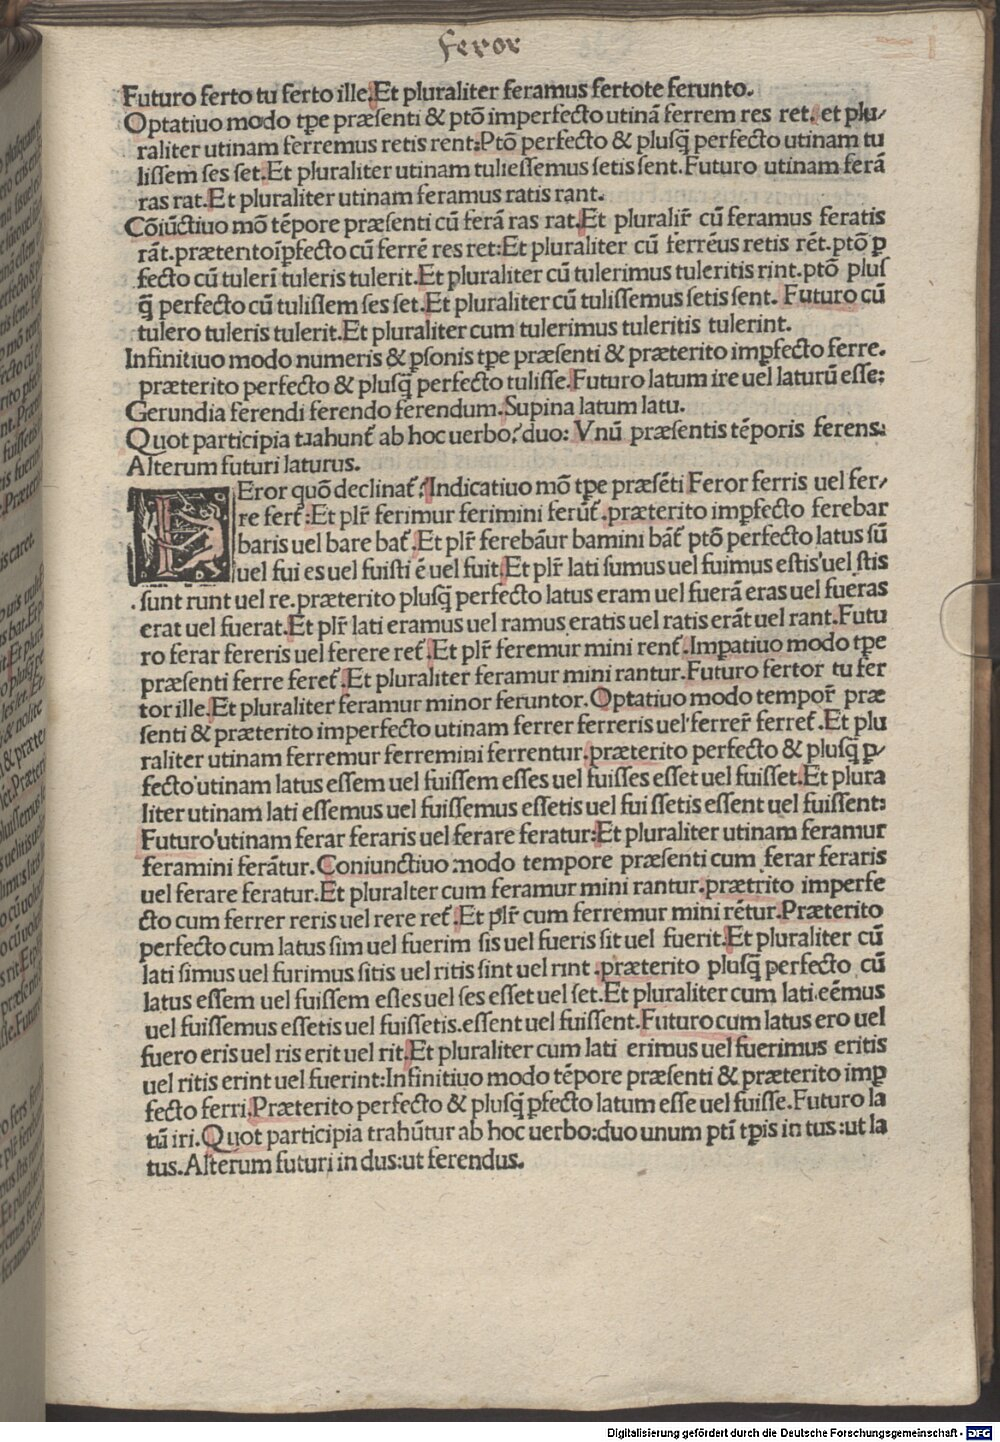 feror
Futuro ferto tu ferto ille.Et pluraliter feramus fertote ferunto.
Optatiuo modo tp̄e præsenti & ptō imperfecto utinā ferrem res ret. et plu/
raliter utinam ferremus retis rent:Ptō perfecto & plusq̄ perfecto utinam tu
lissem ses set.Et pluraliter utinam tuliessemus setis sent.Futuro utinam ferā
ras rat.Et pluraliter utinam feramus ratis rant.
Cōiūctiuo mō tēpore præsenti cū ferā ras rat.Et pluralir̄ cū feramus feratis
rāt.prætentoīpfecto cū ferrē res ret:Et pluraliter cū ferrēus retis rēt.ptō ꝑ
fecto cū tulerī tuleris tulerit.Et pluraliter cū tulerimus tuleritis rint.ptō plus
q̄ perfecto cū tulissem ses set.Et pluraliter cū tulissemus setis sent. Futuro cū
tulero tuleris tulerit.Et pluraliter cum tulerimus tuleritis tulerint.
Infinitiuo modo numeris & ꝑsonis tp̄e præsenti & præterito imꝑfecto ferre.
præterito perfecto & plusq̄ perfecto tulisse.Futuro latum ire uel laturū esse:
Gerundia ferendi ferendo ferendum.Supina latum latu.
Quot participia trahunt̄ ab hoc uerbo?duo: Vnū præsentis tēporis ferens:
Alterum futuri laturus.
FEror quō declinat̄?Indicatiuo mō tp̄e præsēti Feror ferris uel fer/
re fert̄:Et plr̄ ferimur ferimini ferūt̄.præterito imꝑfecto ferebar
baris uel bare bat̄.Et plr̄ ferebāur bamini bāt̄ ptō perfecto latus sū
uel fui es uel fuisti ē uel fuit.Et plr̄ lati sumus uel fuimus estis uel stis
sunt runt uel re.præterito plusq̄ perfecto latus eram uel fuerā eras uel fueras
erat uel fuerat.Et plr̄ lati eramus uel ramus eratis uel ratis erāt uel rant.Futu
ro ferar fereris uel ferere ret̄.Et plr̄ feremur mini rent̄.Imꝑatiuo modo tp̄e
præsenti ferre feret̄.Et pluraliter feramur mini rantur.Futuro fertor tu fer
tor ille.Et pluraliter feramur minor feruntor.Optatiuo modo tempor̄ præ
senti & præterito imperfecto utinam ferrer ferreris uel ferrer̄ ferret̄.Et plu
raliter utinam ferremur ferremini ferrentur.præterito perfecto & plusq̄ ꝑ/
fecto utinam latus essem uel fuissem esses uel fuisses esset uel fuisset.Et plura
liter utinam lati essemus uel fuissemus essetis uel fui ssetis essent uel fuissent:
Futuro utinam ferar feraris uel ferare feratur:Et pluraliter utinam feramur
feramini ferātur.Coniunctiuo modo tempore præsenti cum ferar feraris
uel ferare feratur.Et pluralter cum feramur mini rantur.prætrito imperfe
cto cum ferrer reris uel rere ret̄.Et plr̄ cum ferremur mini rētur.Præterito
perfecto cum latus sim uel fuerim sis uel fueris sit uel fuerit.Et pluraliter cū
lati simus uel furimus sitis uel ritis sint uel rint.præterito plusq̄ perfecto cū
latus essem uel fuissem esses uel ses esset uel set.Et pluraliter cum lati.eēmus
uel fuissemus essetis uel fuissetis.essent uel fuissent.Futuro cum latus ero uel
fuero eris uel ris erit uel rit.Et pluraliter cum lati erimus uel fuerimus eritis
uel ritis erint uel fuerint:Infinitiuo modo tēpore præsenti & præterito imꝑ
fecto ferri.Præterito perfecto & plusq̄ ꝑfecto latum esse uel fuisse.Futuro la
tū iri.Quot participia trahūtur ab hoc uerbo:duo unum ptī tp̄is in tus:ut la
tus.Alterum futuri in dus:ut ferendus.
Digitalisierung gefördert durch die Deutsche Forschungsgemeinschaft - DFG